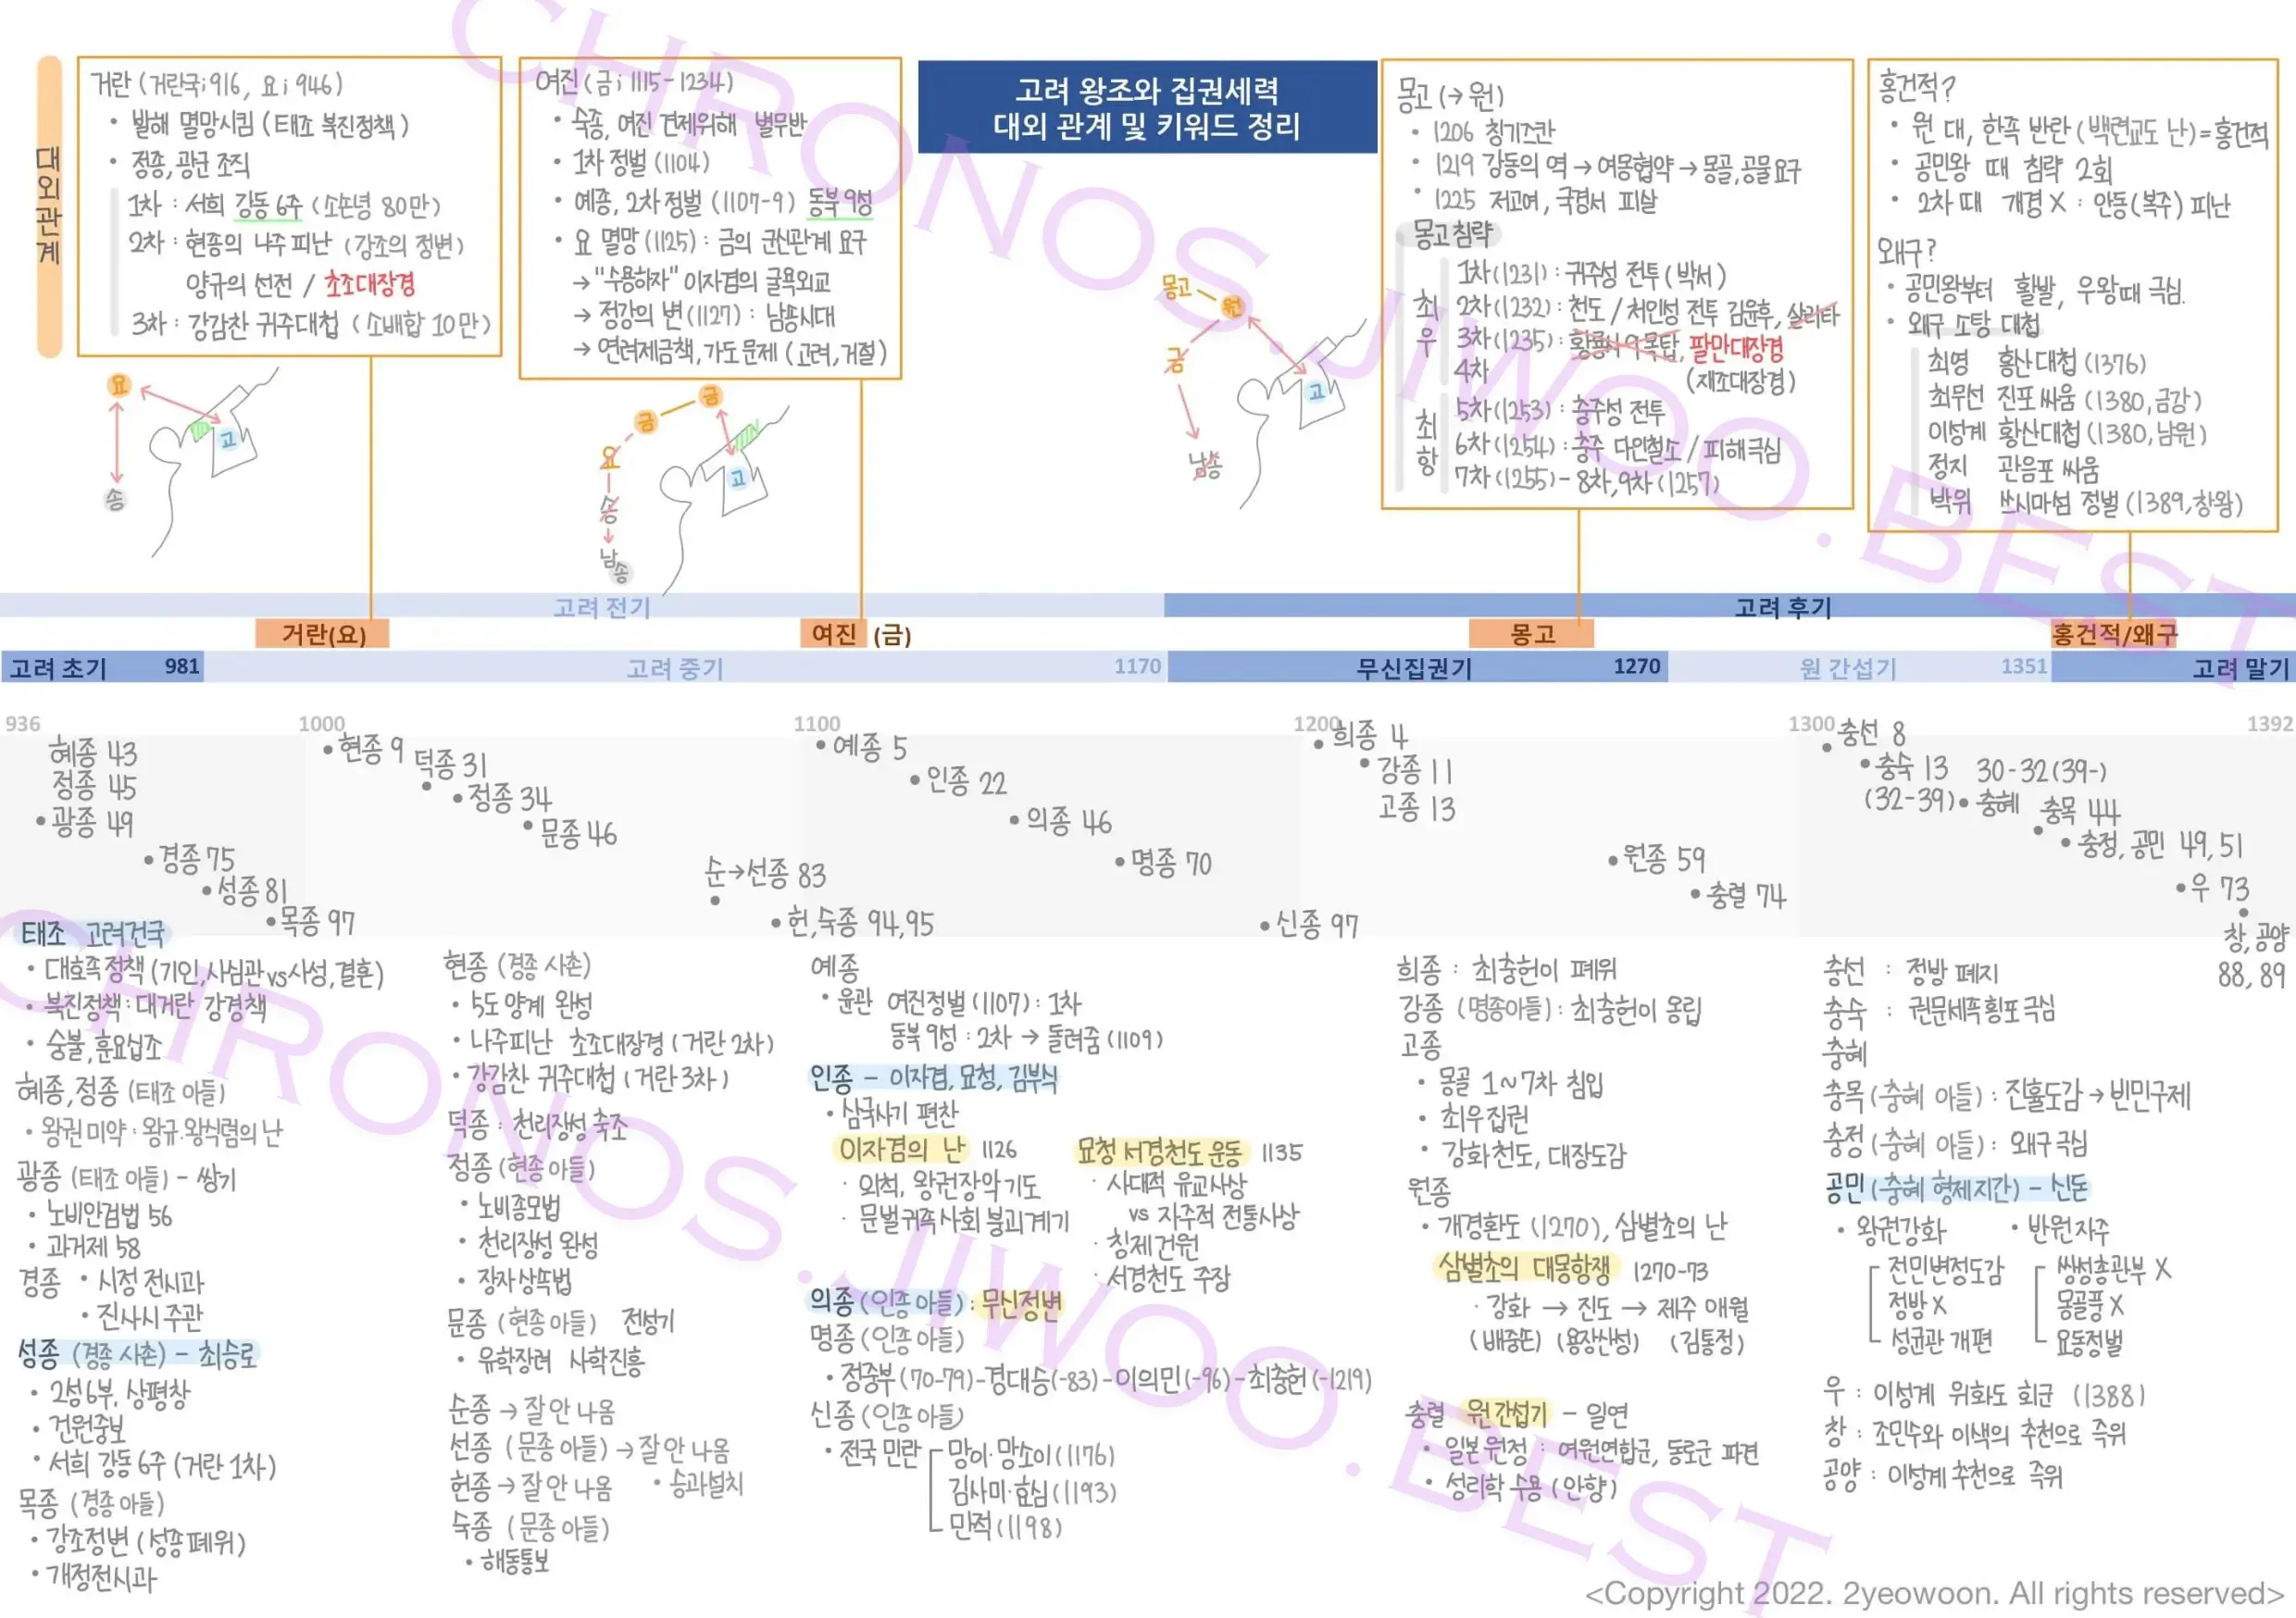 고려 왕조와 집권세력
대외 관계 및 키워드 정리
대외관계
거란 (거란국; 916, 요; 946)
• 발해 멸망시킴 (태조 북진정책)
• 정종, 광군 조직
1차 : 서희 강동 6주 (소손녕 80만)
2차 : 현종의 나주 피난 (강조의 정변)
양규의 선전 / 초조대장경
3차 : 강감찬 귀주대첩 (소배합 10만)
요
고
송
여진 (금; 1115-1234)
• 숙종, 여진 견제위해 별무반
• 1차 정벌 (1104)
• 예종, 2차 정벌 (1107-9) 동북 9성
• 요 멸망 (1125) : 금의 군신관계 요구
→ "수용하자" 이자겸의 굴욕외교
→ 정강의 변 (1127) : 남송시대
→ 연려제금책, 가도 문제 (고려, 거절)
금
금
요
고
송
남송
몽고 (→ 원)
• 1206 칭기즈칸
• 1219 강동의 역 → 여몽협약 → 몽골, 공물 요구
• 1225 저고여, 국경서 피살
몽고 침략
최우
1차 (1231) : 귀주성 전투 (박서)
2차 (1232) : 천도 / 처인성 전투 김윤후, 살리타
3차 (1235) : 황룡사 9목탑, 팔만대장경
4차 (재조대장경)
최항
5차 (1253) : 충주성 전투
6차 (1254) : 충주 다인철소 / 피해극심
7차 (1255) - 8차, 9차 (1257)
몽고
원
금
고
남송
홍건적?
• 원 대, 한족 반란 (백련교도 난) = 홍건적
• 공민왕 때 침략 2회
• 2차 때 개경 X : 안동(복주) 피난
왜구?
• 공민왕부터 활발, 우왕때 극심.
• 왜구 소탕 대첩
최영 홍산대첩 (1376)
최무선 진포 싸움 (1380, 금강)
이성계 황산대첩 (1380, 남원)
정지 관음포 싸움
박위 쓰시마섬 정벌 (1389, 창왕)
고려 전기
고려 후기
거란(요)
여진 (금)
몽고
홍건적/왜구
고려 초기 981
고려 중기 1170
무신집권기 1270
원 간섭기 1351
고려 말기
936
1000
1100
1200
1300
1392
혜종 43
정종 45
• 광종 49
• 경종 75
• 성종 81
• 목종 97
• 현종 9
덕종 31
• 정종 34
• 문종 46
순→선종 83
• 헌, 숙종 94, 95
• 예종 5
• 인종 22
• 의종 46
• 명종 70
• 신종 97
• 희종 4
• 강종 11
고종 13
• 원종 59
• 충렬 74
• 충선 8
• 충숙 13 30-32 (39-)
(32-39) • 충혜
충목 44
• 충정, 공민 49, 51
• 우 73
창, 공양
88, 89
태조 고려건국
• 대호족정책 (기인, 사심관 vs 사성, 결혼)
• 북진정책 : 대거란 강경책
• 숭불, 훈요십조
혜종, 정종 (태조 아들)
• 왕권 미약 : 왕규·왕식렴의 난
광종 (태조 아들) - 쌍기
• 노비안검법 56
• 과거제 58
경종 • 시정 전시과
• 진사시 주관
성종 (경종 사촌) - 최승로
• 2성 6부, 상평창
• 건원중보
• 서희 강동 6주 (거란 1차)
목종 (경종 아들)
• 강조정변 (성종 폐위)
• 개정전시과
현종 (경종 사촌)
• 5도 양계 완성
• 나주피난 초조대장경 (거란 2차)
• 강감찬 귀주대첩 (거란 3차)
덕종 : 천리장성 축조
정종 (현종 아들)
• 노비종모법
• 천리장성 완성
• 장자상속법
문종 (현종 아들) 전성기
• 유학장려 사학진흥
순종 → 잘 안 나옴
선종 (문종 아들) → 잘 안 나옴
헌종 → 잘 안 나옴 • 승과설치
숙종 (문종 아들)
• 해동통보
예종
• 윤관 여진정벌 (1107) : 1차
동북 9성 : 2차 → 돌려줌 (1109)
인종 - 이자겸, 묘청, 김부식
• 삼국사기 편찬
이자겸의 난 1126
· 외척, 왕권장악 기도
· 문벌귀족사회 붕괴계기
묘청 서경천도 운동 1135
· 사대적 유교사상
vs 자주적 전통사상
· 칭제건원
· 서경천도 주장
의종 (인종 아들) : 무신정변
명종 (인종 아들)
• 정중부 (70-79) - 경대승 (-83) - 이의민 (-96) - 최충헌 (-1219)
신종 (인종 아들)
• 전국 민란
망이·망소이 (1176)
김사미·효심 (1193)
만적 (1198)
희종 : 최충헌이 폐위
강종 (명종아들) : 최충헌이 옹립
고종
• 몽골 1~7차 침입
• 최우집권
• 강화천도, 대장도감
원종
• 개경환도 (1270), 삼별초의 난
삼별초의 대몽항쟁 1270-73
· 강화 → 진도 → 제주 애월
(배중손) (용장산성) (김통정)
충렬 원 간섭기 - 일연
• 일본 원정 : 여원연합군, 동로군 파견
• 성리학 수용 (안향)
충선 : 정방 폐지
충숙 : 권문세족 횡포 극심
충혜
충목 (충혜 아들) : 진휼도감 → 빈민구제
충정 (충혜 아들) : 왜구 극심
공민 (충혜 형제지간) - 신돈
• 왕권강화
전민변정도감
정방 X
성균관 개편
• 반원자주
쌍성총관부 X
몽골풍 X
요동정벌
우 : 이성계 위화도 회군 (1388)
창 : 조민수와 이색의 추천으로 즉위
공양 : 이성계 추천으로 즉위
CHRONOS.JIWOO.BEST
CHRONOS.JIWOO.BEST
<Copyright 2022. 2yeowoon. All rights reserved>